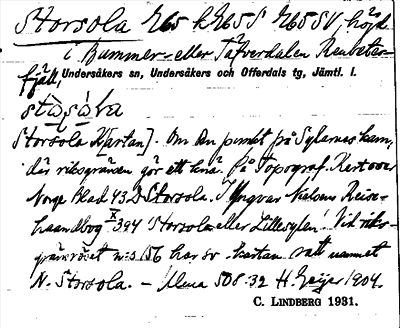 Storsola 265 h 265 S 265 SV, höjd
i Bummer- eller Täfverdalen Renbetes-
fjäll, Undersåkers sn, Undersåkers och Offerdals tg, Jämtl. l.
Storsola Kartan]. Om den punkt på Sylarnas kam,
där riksgränsen gör ett knä. på Topograf. Kart over
Norge Blad 43. D Storsola. I Yngvar Nielsens Reise-
haandbog X 394 Storsola eller Lillesylen. Vid riks-
gränsröset n:s 156 har sv. kartan satt namnet
N. Storsola. – Uma 508.32 H Geijer 1904.
C. LINDBERG 1931.